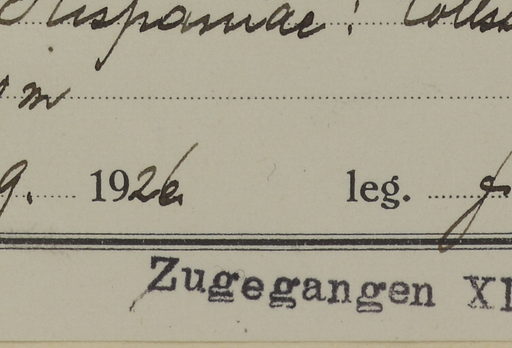 Hispaniae: Colls
m
g. 1926 leg. J
Zugegangen XI